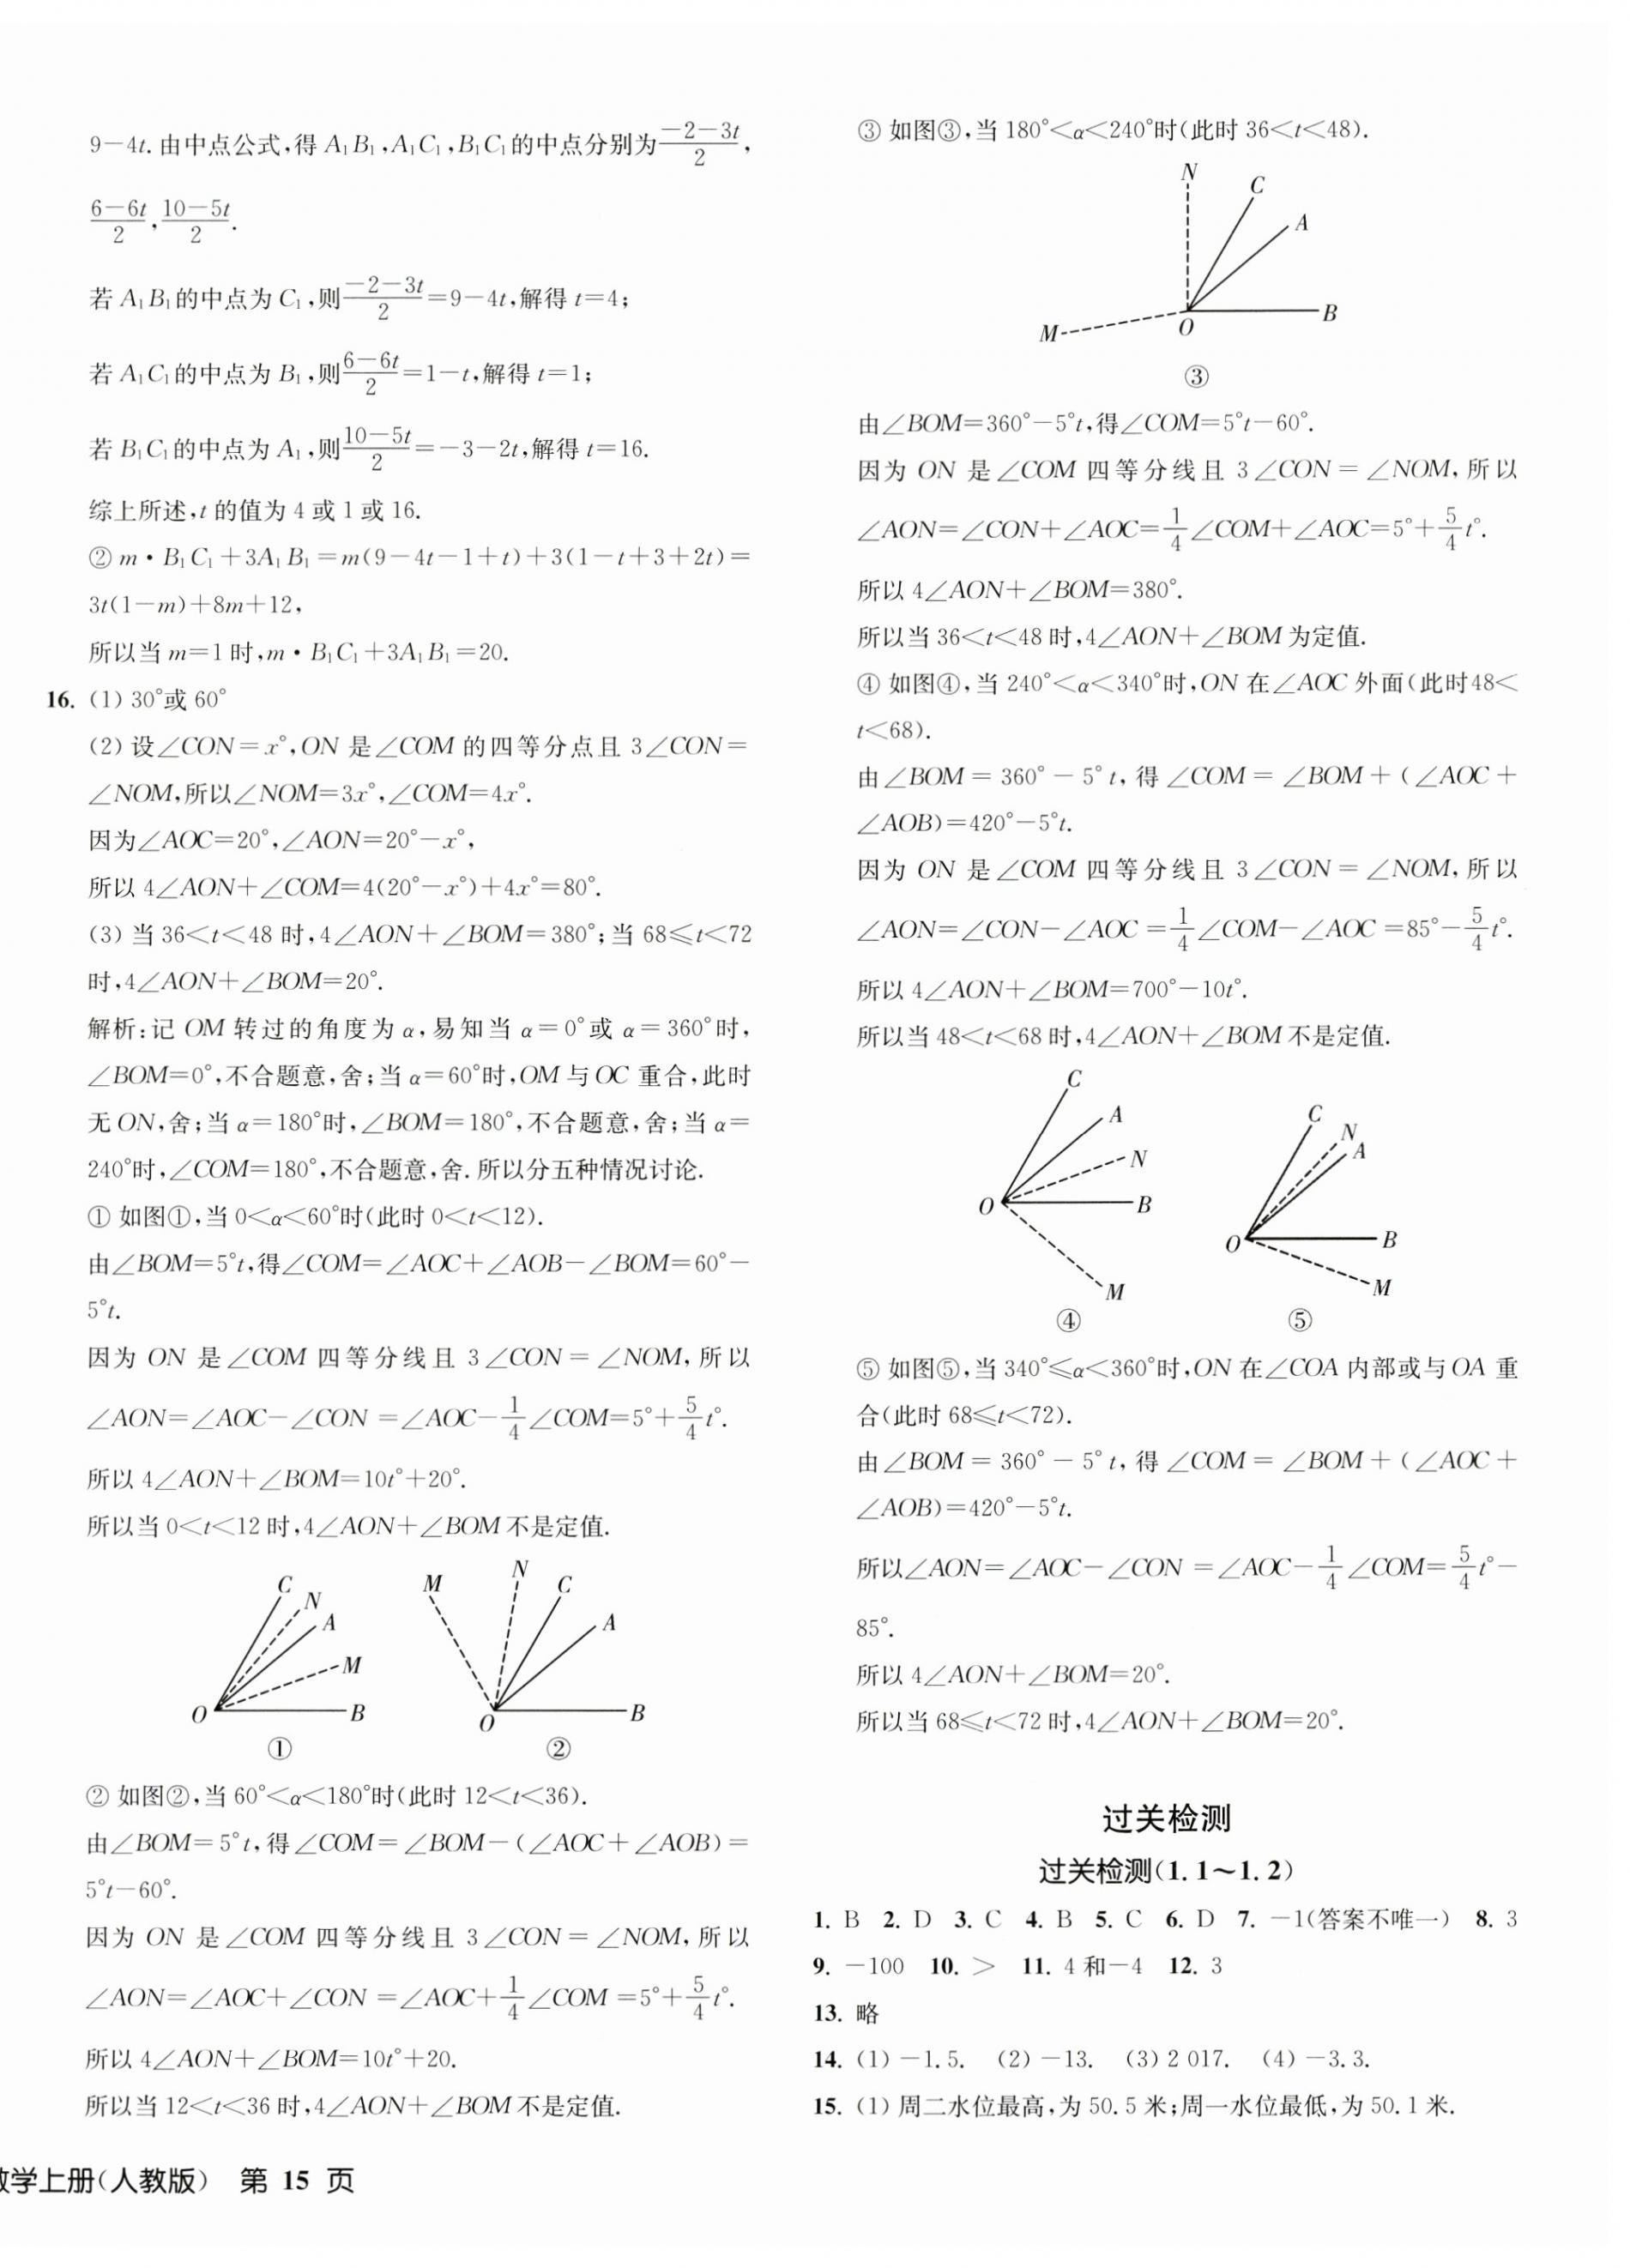 9－4t.由中点公式,得 A₁B₁,A₁C₁,B₁C₁的中点分别为(－2－3t)/2,
(6－6t)/2,(10－5t)/2.
若 A₁B₁的中点为 C₁,则(－2－3t)/2＝9－4t,解得 t＝4;
若 A₁C₁的中点为 B₁,则(6－6t)/2＝1－t,解得 t＝1;
若 B₁C₁的中点为 A₁,则(10－5t)/2＝－3－2t,解得 t＝16.
综上所述,t 的值为 4 或 1 或 16.
② m·B₁C₁＋3A₁B₁＝m(9－4t－1＋t)＋3(1－t＋3＋2t)＝
3t(1－m)＋8m＋12,
所以当 m＝1 时,m·B₁C₁＋3A₁B₁＝20.
16. (1) 30°或 60°
(2) 设∠CON＝x°,ON 是∠COM 的四等分点且 3∠CON＝
∠NOM,所以∠NOM＝3x°,∠COM＝4x°.
因为∠AOC＝20°,∠AON＝20°－x°,
所以 4∠AON＋∠COM＝4(20°－x°)＋4x°＝80°.
(3) 当 36＜t＜48 时,4∠AON＋∠BOM＝380°;当 68≤t＜72
时,4∠AON＋∠BOM＝20°.
解析:记 OM 转过的角度为 α,易知当 α＝0°或 α＝360°时,
∠BOM＝0°,不合题意,舍;当 α＝60°时,OM 与 OC 重合,此时
无 ON,舍;当 α＝180°时,∠BOM＝180°,不合题意,舍;当 α＝
240°时,∠COM＝180°,不合题意,舍.所以分五种情况讨论.
① 如图①,当 0＜α＜60°时(此时 0＜t＜12).
由∠BOM＝5°t,得∠COM＝∠AOC＋∠AOB－∠BOM＝60°－
5°t.
因为 ON 是∠COM 四等分线且 3∠CON＝∠NOM,所以
∠AON＝∠AOC－∠CON＝∠AOC－1/4∠COM＝5°＋5/4t°.
所以 4∠AON＋∠BOM＝10t°＋20°.
所以当 0＜t＜12 时,4∠AON＋∠BOM 不是定值.
C N A M O B
①
M N C A O B
②
② 如图②,当 60°＜α＜180°时(此时 12＜t＜36).
由∠BOM＝5°t,得∠COM＝∠BOM－(∠AOC＋∠AOB)＝
5°t－60°.
因为 ON 是∠COM 四等分线且 3∠CON＝∠NOM,所以
∠AON＝∠AOC＋∠CON＝∠AOC＋1/4∠COM＝5°＋5/4t°.
所以 4∠AON＋∠BOM＝10t°＋20.
所以当 12＜t＜36 时,4∠AON＋∠BOM 不是定值.
③ 如图③,当 180°＜α＜240°时(此时 36＜t＜48).
N C A B M O
③
由∠BOM＝360°－5°t,得∠COM＝5°t－60°.
因为 ON 是∠COM 四等分线且 3∠CON＝∠NOM,所以
∠AON＝∠CON＋∠AOC＝1/4∠COM＋∠AOC＝5°＋5/4t°.
所以 4∠AON＋∠BOM＝380°.
所以当 36＜t＜48 时,4∠AON＋∠BOM 为定值.
④ 如图④,当 240°＜α＜340°时,ON 在∠AOC 外面(此时48＜
t＜68).
由∠BOM＝360°－5°t,得∠COM＝∠BOM＋(∠AOC＋
∠AOB)＝420°－5°t.
因为 ON 是∠COM 四等分线且 3∠CON＝∠NOM,所以
∠AON＝∠CON－∠AOC＝1/4∠COM－∠AOC＝85°－5/4t°.
所以 4∠AON＋∠BOM＝700°－10t°.
所以当 48＜t＜68 时,4∠AON＋∠BOM 不是定值.
C A N B O M
④
C N A B O M
⑤
⑤ 如图⑤,当 340°≤α＜360°时,ON 在∠COA 内部或与OA 重
合(此时 68≤t＜72).
由∠BOM＝360°－5°t,得∠COM＝∠BOM＋(∠AOC＋
∠AOB)＝420°－5°t.
所以∠AON＝∠AOC－∠CON＝∠AOC－1/4∠COM＝5/4t°－
85°.
所以 4∠AON＋∠BOM＝20°.
所以当 68≤t＜72 时,4∠AON＋∠BOM＝20°.
过关检测
过关检测(1.1～1.2)
1. B 2. D 3. C 4. B 5. C 6. D 7. －1(答案不唯一) 8. 3
9. －100 10. ＞ 11. 4 和－4 12. 3
13. 略
14. (1) －1.5. (2) －13. (3) 2 017. (4) －3.3.
15. (1) 周二水位最高,为 50.5 米;周一水位最低,为 50.1 米.
学上册(人教版) 第 15 页